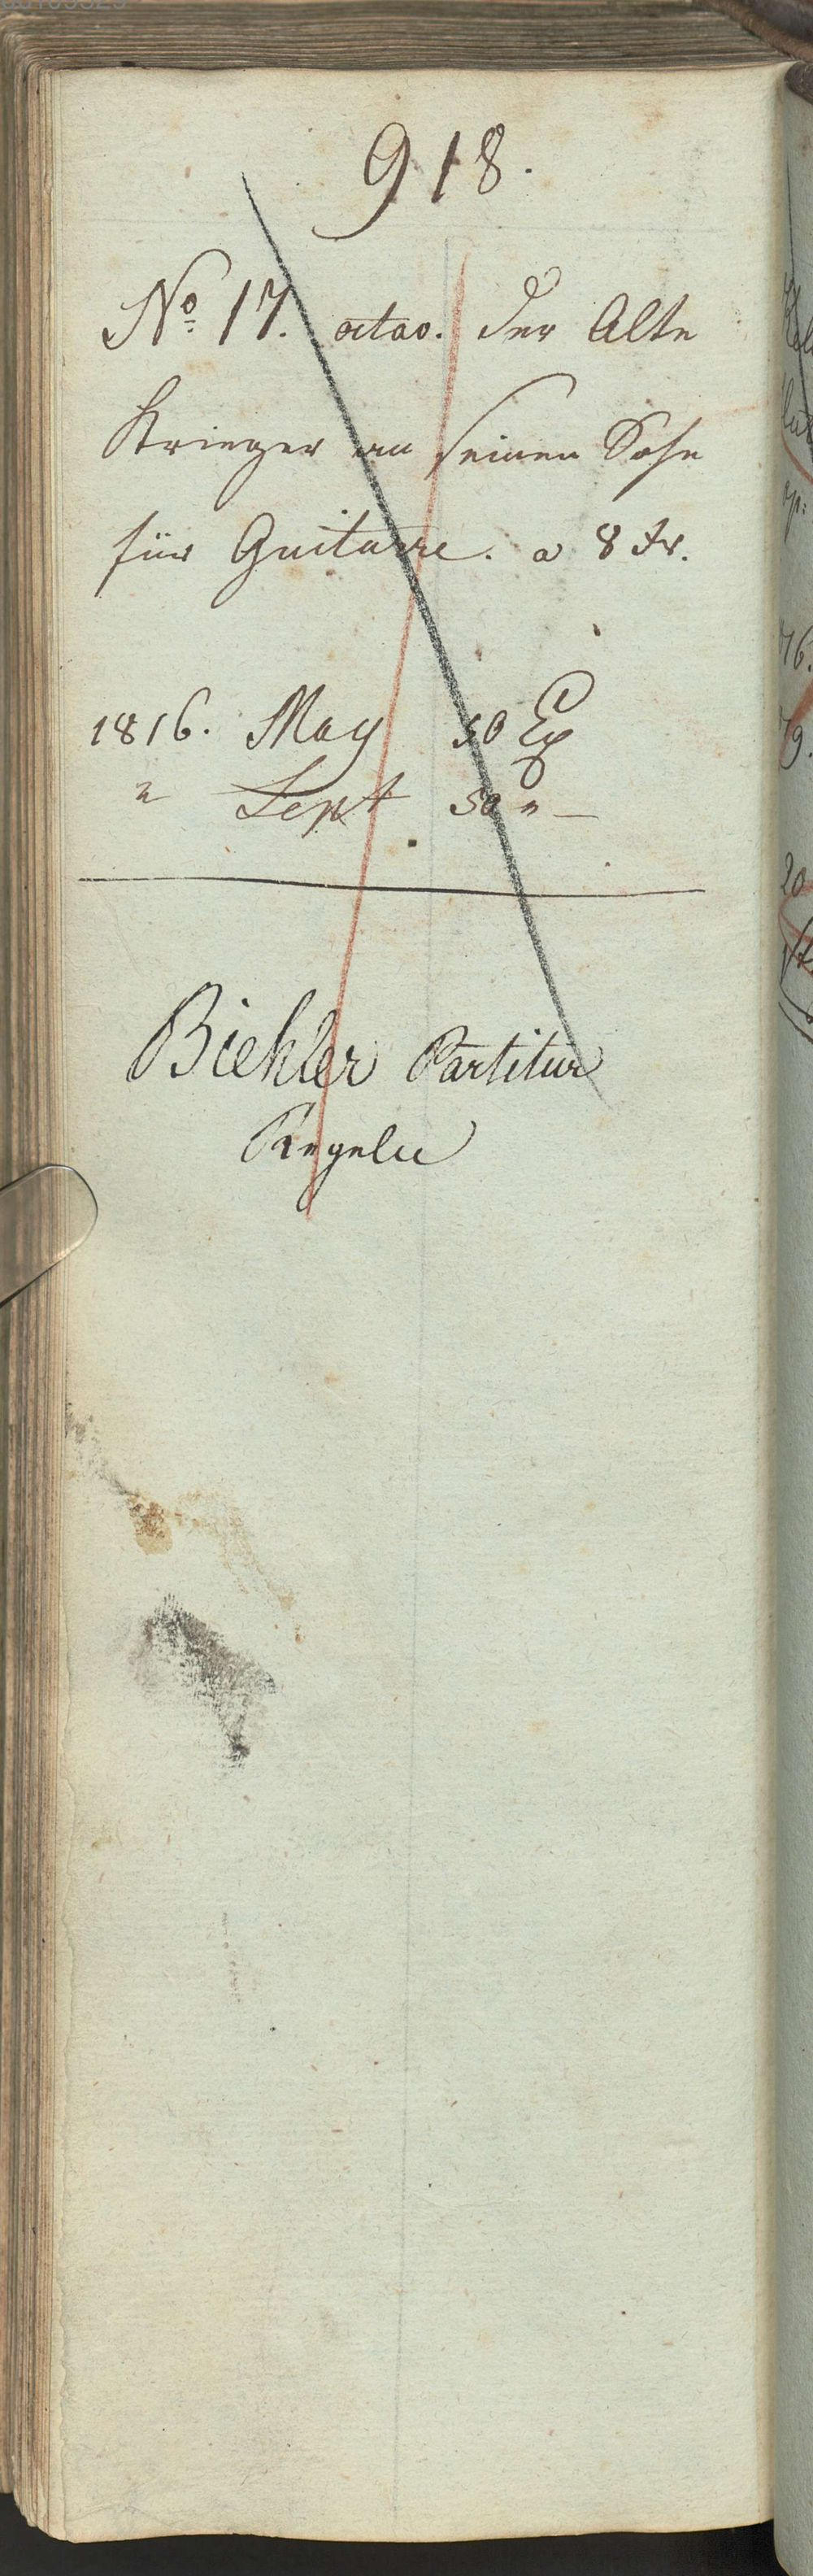 918.
No. 17. octav. der Alte
Krieger an seinen Sohn
für Guitarre. a 8 Xr.
1816. May 50 Ex
" Sept 50 " —
Biehler Partitur
Regeln